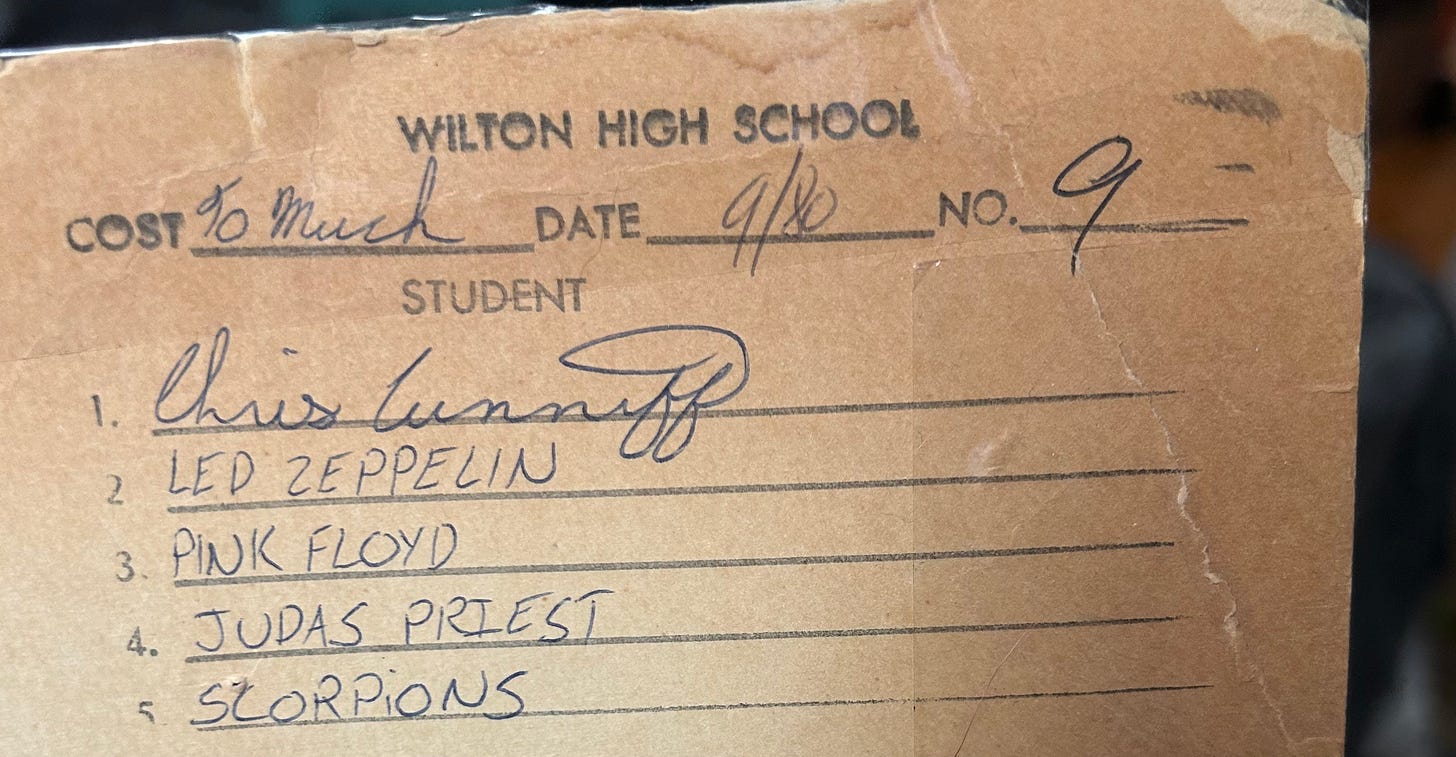 WILTON HIGH SCHOOL
COST To Much DATE 9/80 NO. 9
STUDENT
1. Chris Cunniff
2 LED ZEPPELIN
3. PINK FLOYD
4. JUDAS PRIEST
5 SCORPiONS